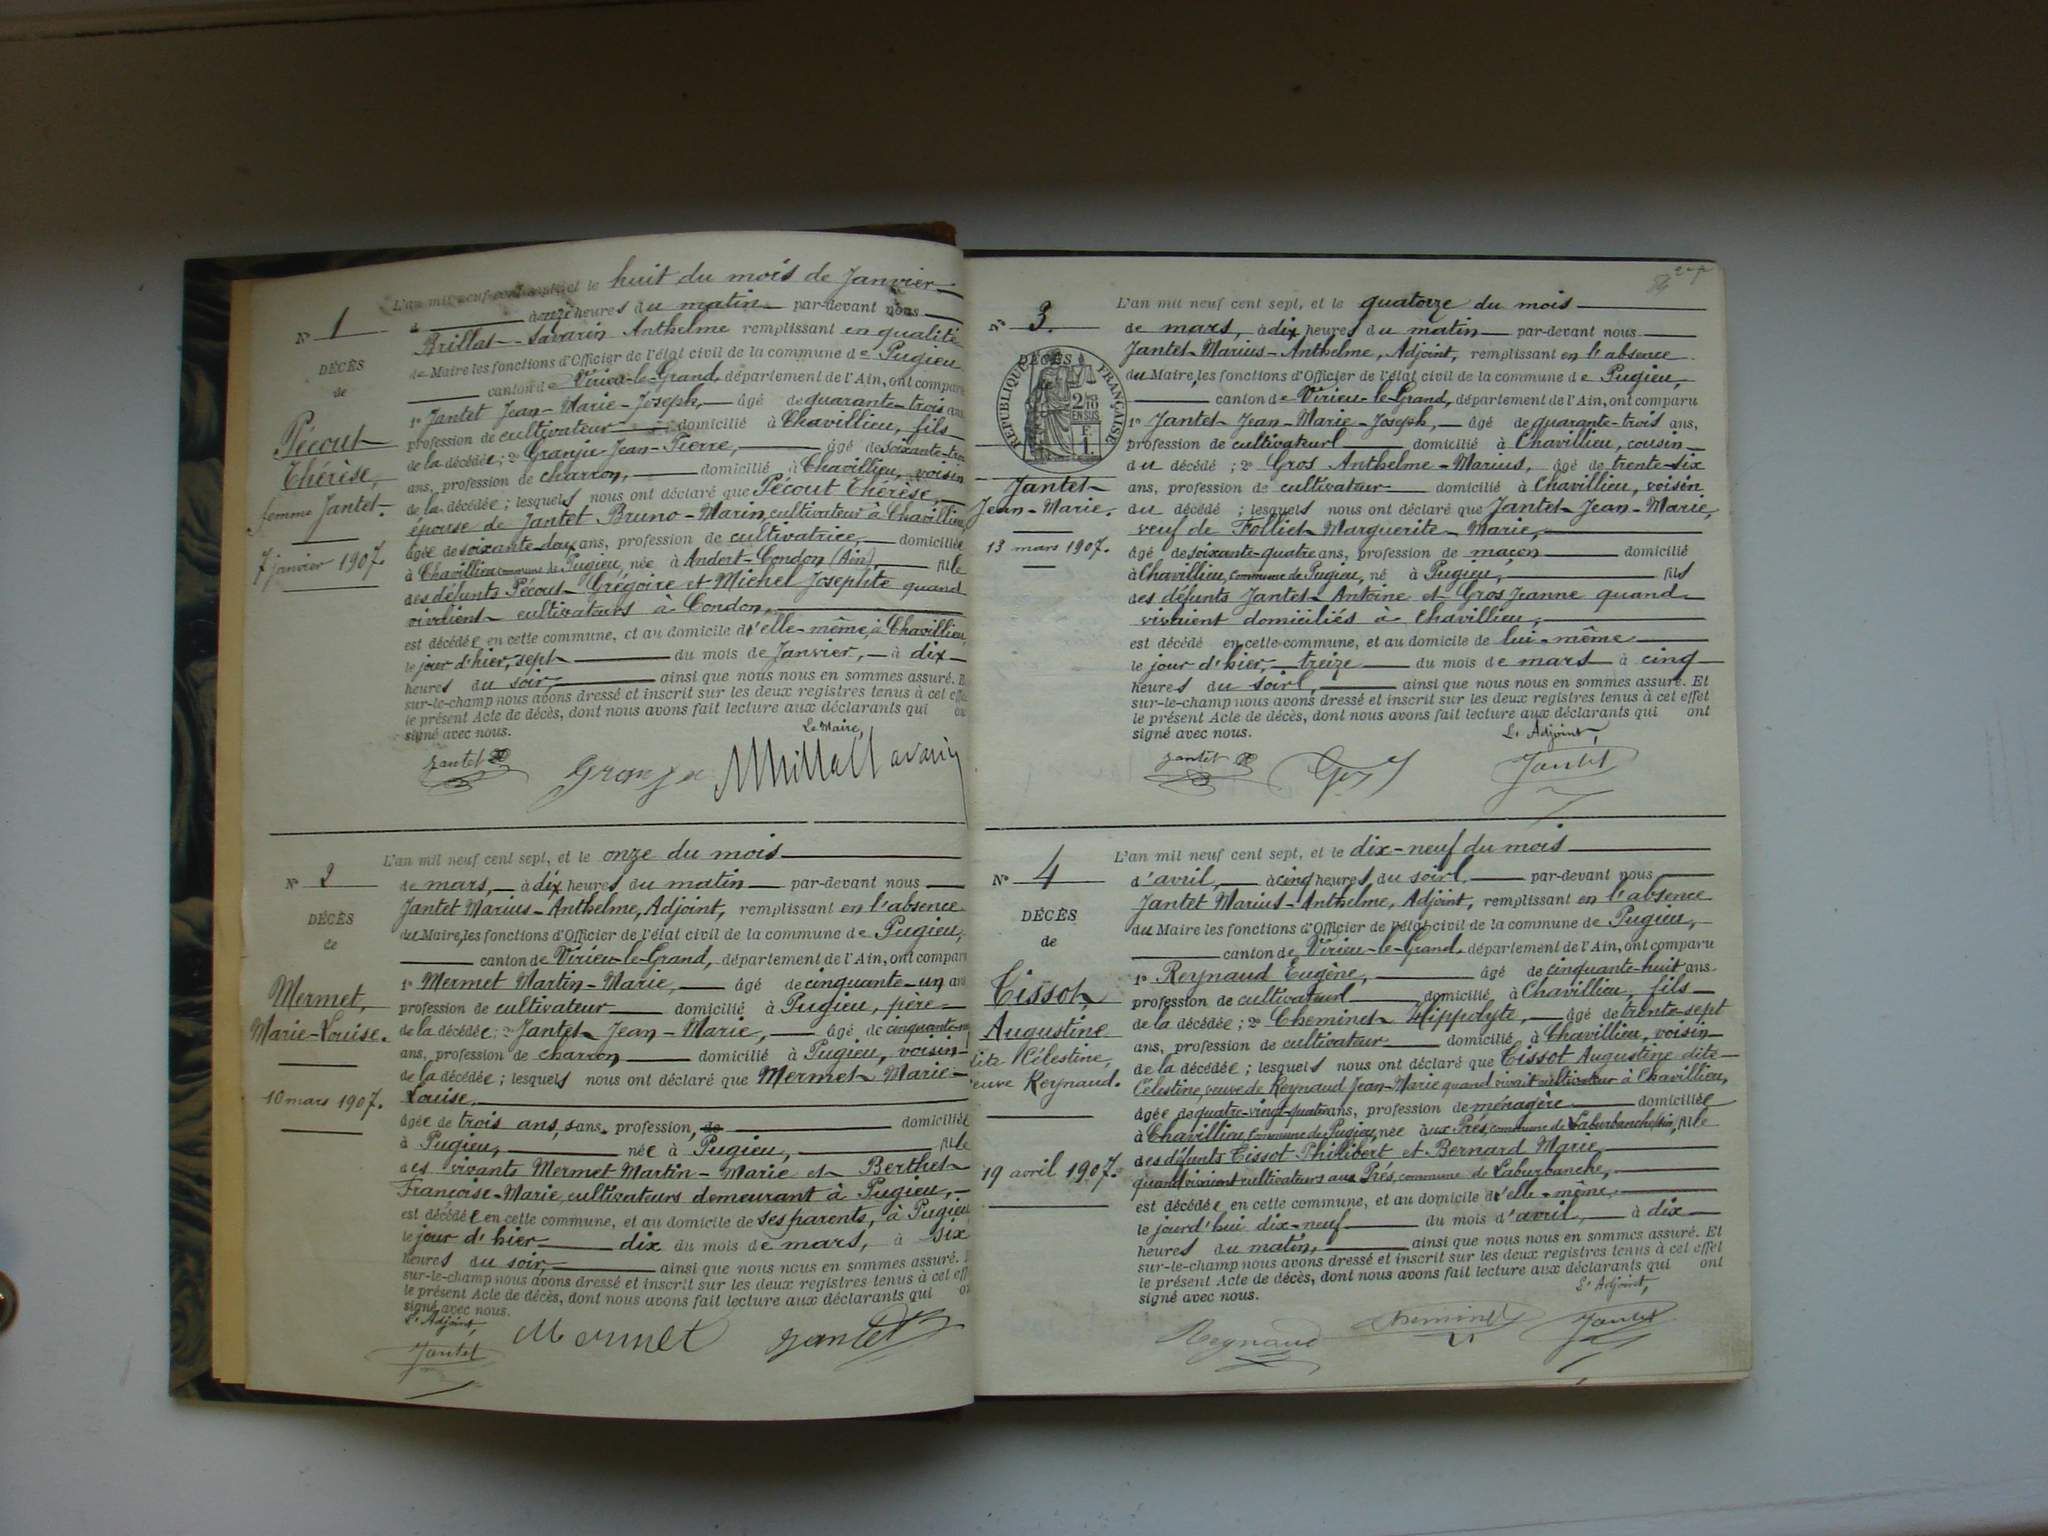 L'an mil neuf cent sept, et le huit du mois de Janvier
N° 1
à onze heures du matin par-devant nous
Brillat-Savarin Anthelme remplissant en qualité
DÉCÈS
de Maire les fonctions d'Officier de l'état civil de la commune de Pugieu
de
canton de Virieu-le-Grand, département de l'Ain, ont comparu
1° Jantet Jean-Marie-Joseph, âgé de quarante-trois ans,
Pécout
profession de cultivateur domicilié à Chavillieu, fils
Thérèse,
de la décédée; 2° Granju Jean-Pierre, âgé de soixante-trois
ans, profession de charron, domicilié à Chavillieu, voisin
femme Jantet.
de la décédée; lesquels nous ont déclaré que Pécout Thérèse,
épouse de Jantet Bruno-Marin, cultivateur à Chavillieu,
7 janvier 1907.
âgée de soixante-dix ans, profession de cultivatrice, domiciliée
à Chavillieu commune de Pugieu, née à Andert-Condon (Ain), fille
des défunts Pécout Grégoire et Michel Josephte quand
vivaient cultivateurs à Condon,
est décédée en cette commune, et au domicile d'elle-même, à Chavillieu,
le jour d'hier, sept du mois de Janvier, à dix
heures du soir, ainsi que nous nous en sommes assuré. Et
sur-le-champ nous avons dressé et inscrit sur les deux registres tenus à cet effet
le présent Acte de décès, dont nous avons fait lecture aux déclarants qui ont
signé avec nous.
Le Maire,
Jantet
Granju
Brillat Savarin
L'an mil neuf cent sept, et le onze du mois
N° 2
de mars, à dix heures du matin par-devant nous
Jantet Marius-Anthelme, Adjoint, remplissant en l'absence
DÉCÈS
du Maire, les fonctions d'Officier de l'état civil de la commune de Pugieu,
de
canton de Virieu-le-Grand, département de l'Ain, ont comparu
1° Mermet Martin-Marie, âgé de cinquante-un ans
Mermet,
profession de cultivateur domicilié à Pugieu, père
Marie-Louise.
de la décédée; 2° Jantet Jean-Marie, âgé de
ans, profession de charron domicilié à Pugieu, voisin
de la décédée; lesquels nous ont déclaré que Mermet Marie-
10 mars 1907.
Louise,
âgée de trois ans, sans profession, de domiciliée
à Pugieu, née à Pugieu, fille
des vivants Mermet Martin-Marie et Berthet
Françoise-Marie, cultivateurs demeurant à Pugieu,
est décédée en cette commune, et au domicile de ses parents, à Pugieu
le jour d'hier dix du mois de mars, à six
heures du soir, ainsi que nous nous en sommes assuré.
sur-le-champ nous avons dressé et inscrit sur les deux registres tenus à cet effet
le présent Acte de décès, dont nous avons fait lecture aux déclarants qui ont
signé avec nous.
L'Adjoint,
Jantet
Mermet
Jantet
27
L'an mil neuf cent sept, et le quatorze du mois
N° 3.
de mars, à dix heures du matin par-devant nous
Jantet Marius-Anthelme, Adjoint, remplissant en l'absence
DÉCÈS
du Maire, les fonctions d'Officier de l'état civil de la commune de Pugieu,
RÉPUBLIQUE FRANÇAISE
2/10 EN SUS
canton de Virieu-le-Grand, département de l'Ain, ont comparu
1° Jantet Jean-Marie-Joseph, âgé de quarante-trois ans,
profession de cultivateur domicilié à Chavillieu, cousin
du décédé; 2° Gros Anthelme-Marius, âgé de trente-six
Jantet
ans, profession de cultivateur domicilié à Chavillieu, voisin
Jean-Marie.
du décédé; lesquels nous ont déclaré que Jantet Jean-Marie,
veuf de Folliet Marguerite-Marie,
13 mars 1907.
âgé de soixante-quatre ans, profession de maçon domicilié
à Chavillieu, commune de Pugieu, né à Pugieu, fils
des défunts Jantet Antoine et Gros Jeanne quand
vivaient domiciliés à Chavillieu,
est décédé en cette commune, et au domicile de lui-même
le jour d'hier, treize du mois de mars à cinq
heures du soir, ainsi que nous nous en sommes assuré. Et
sur-le-champ nous avons dressé et inscrit sur les deux registres tenus à cet effet
le présent Acte de décès, dont nous avons fait lecture aux déclarants qui ont
signé avec nous.
L'Adjoint,
Jantet
Gros
Jantet
L'an mil neuf cent sept, et le dix-neuf du mois
N° 4
d'avril, à cinq heures du soir par-devant nous
Jantet Marius-Anthelme, Adjoint, remplissant en l'absence
DÉCÈS
du Maire les fonctions d'Officier de l'état civil de la commune de Pugieu,
de
canton de Virieu-le-Grand, département de l'Ain, ont comparu
1° Reynaud Eugène, âgé de cinquante-huit ans.
Tissot
profession de cultivateur domicilié à Chavillieu, fils
Augustine
de la décédée; 2° Cheminet Hippolyte, âgé de trente-sept
ans, profession de cultivateur domicilié à Chavillieu, voisin
dite Célestine,
de la décédée; lesquels nous ont déclaré que Tissot Augustine dite
veuve Reynaud.
Célestine, veuve de Reynaud Jean-Marie quand vivait cultivateur à Chavillieu,
âgée de quatre-vingt-quatre ans, profession de ménagère domiciliée
à Chavillieu commune de Pugieu, née aux Prés, commune de Laburbanche (Ain), fille
19 avril 1907.
des défunts Tissot Philibert et Bernard Marie
quand vivaient cultivateurs aux Prés, commune de Laburbanche,
est décédée en cette commune, et au domicile d'elle-même,
le jourd'hui dix-neuf du mois d'avril, à dix
heures du matin, ainsi que nous nous en sommes assuré. Et
sur-le-champ nous avons dressé et inscrit sur les deux registres tenus à cet effet
le présent Acte de décès, dont nous avons fait lecture aux déclarants qui ont
signé avec nous.
L'Adjoint,
Reynaud
Cheminet
Jantet